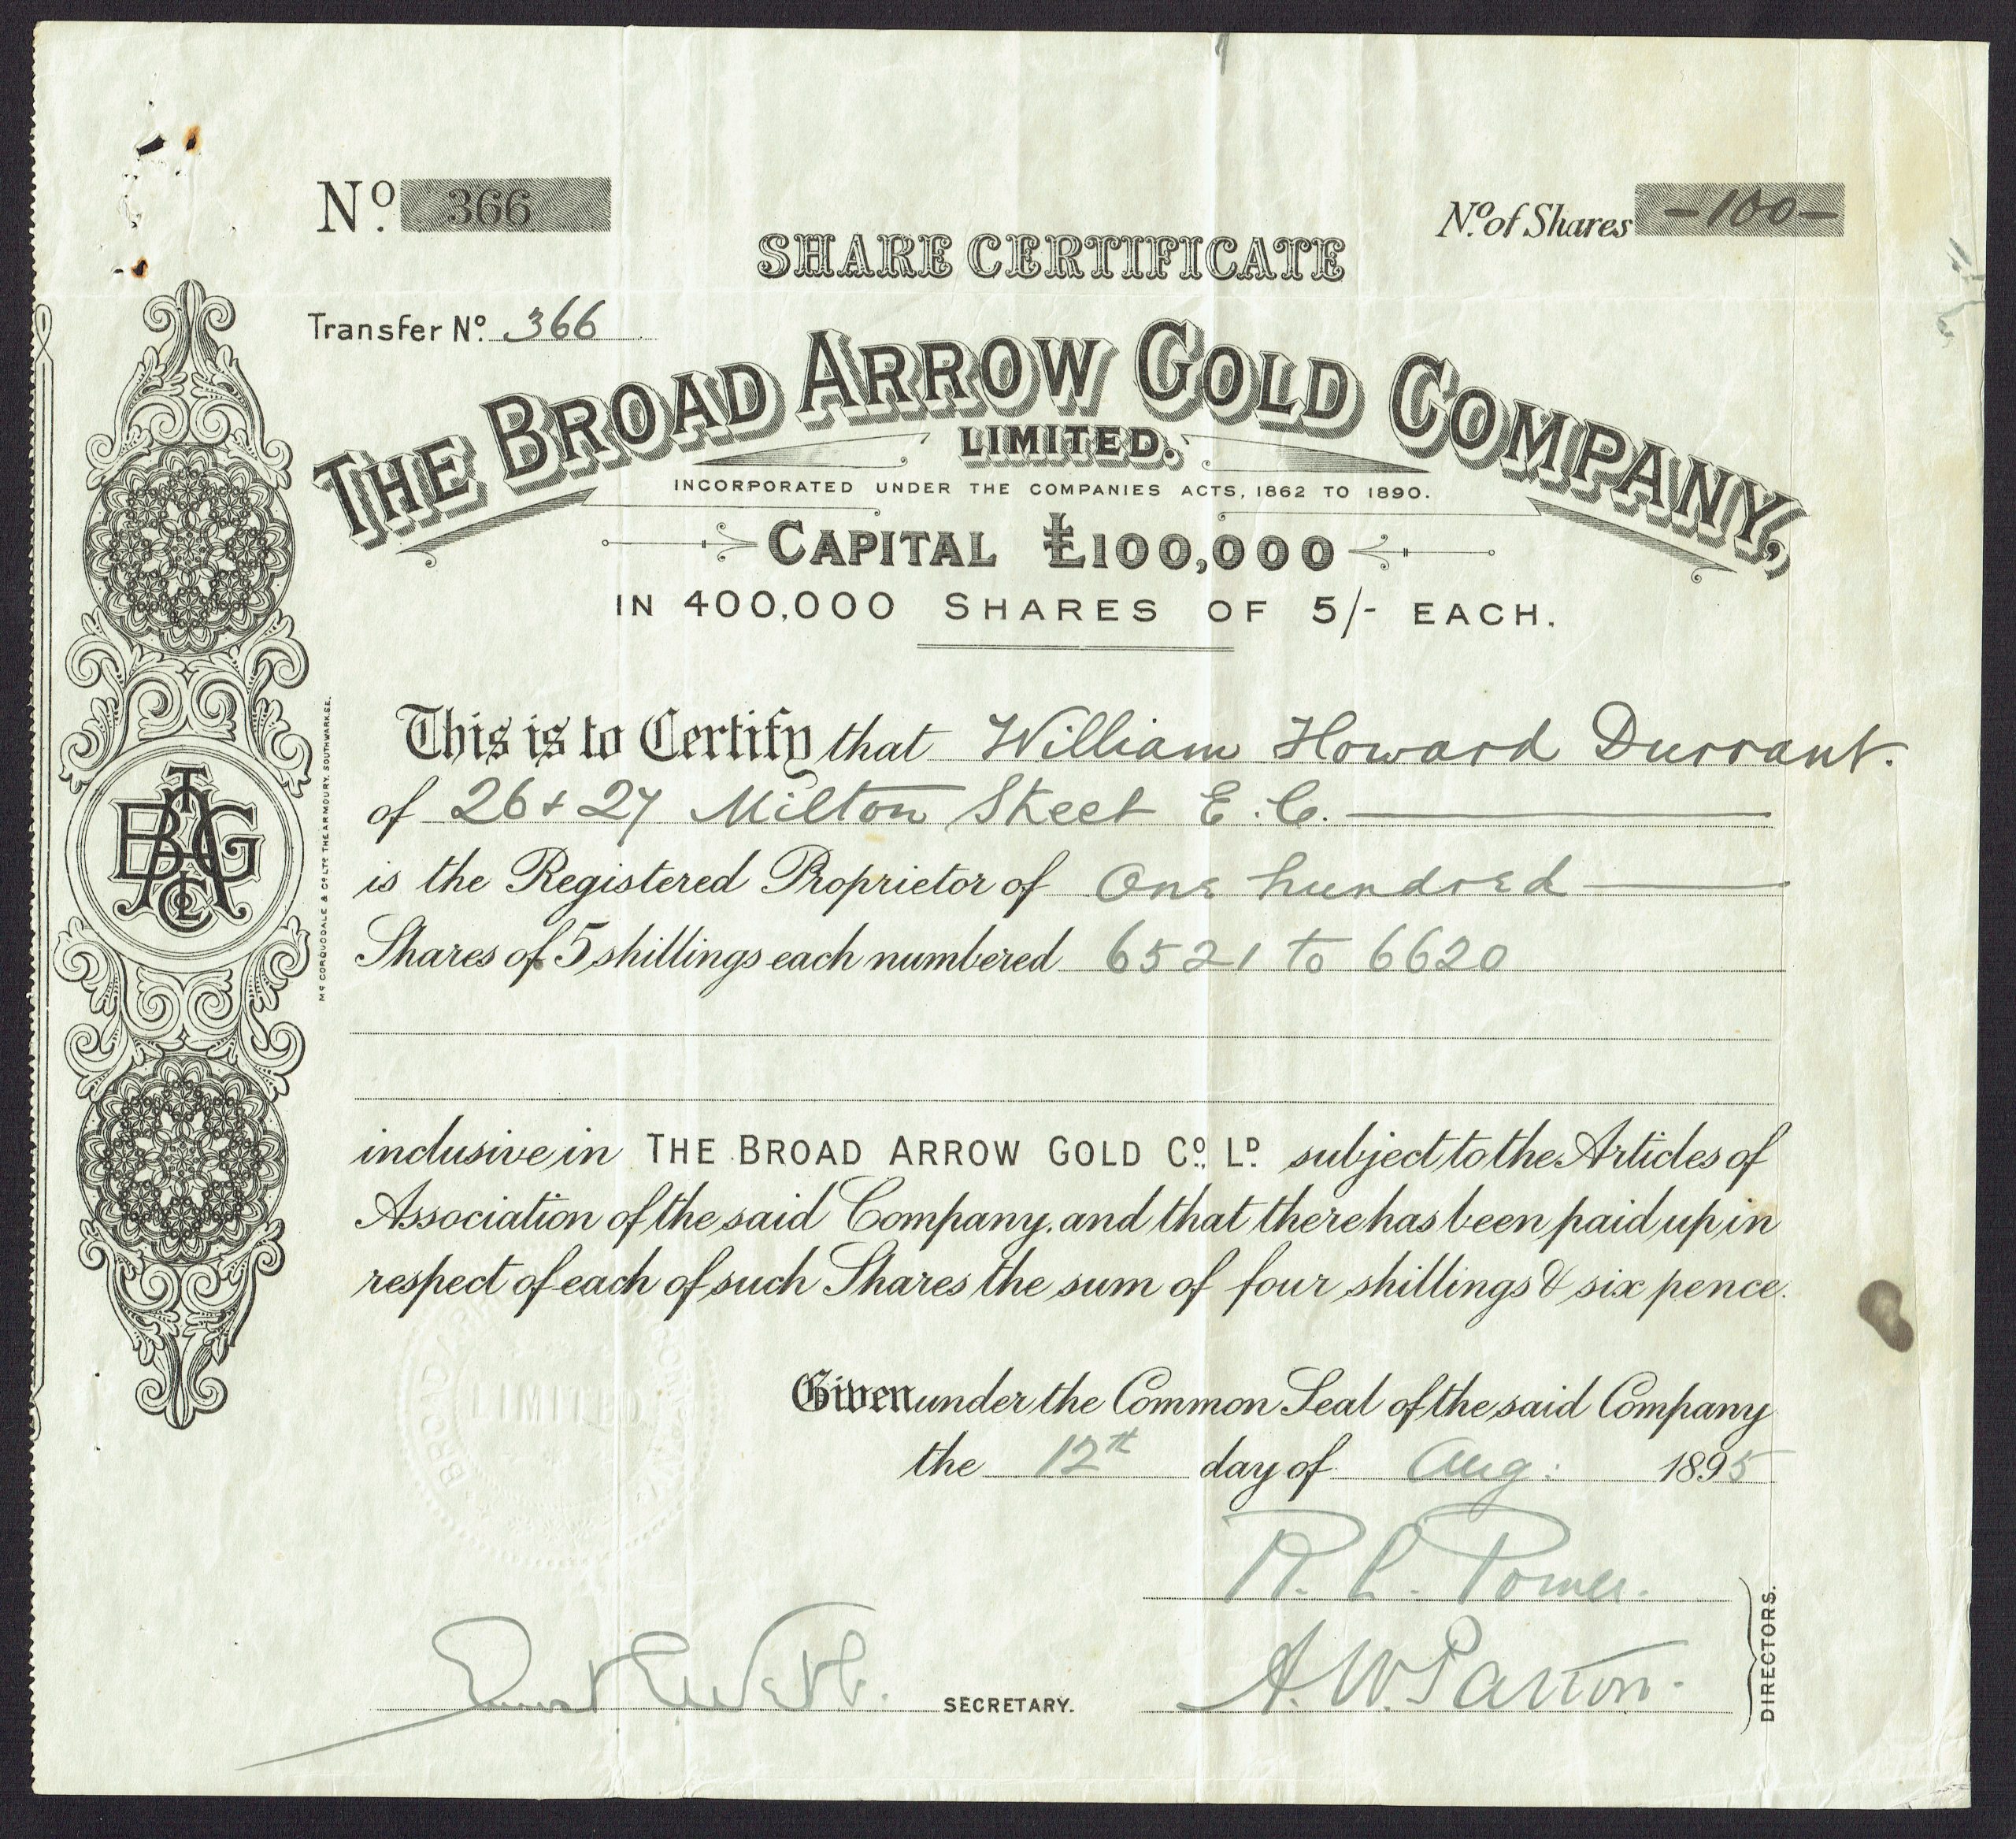 No. 366
No. of Shares -100-
SHARE CERTIFICATE
Transfer No. 366
THE BROAD ARROW GOLD COMPANY,
LIMITED.
INCORPORATED UNDER THE COMPANIES ACTS, 1862 TO 1890.
CAPITAL £100,000
IN 400,000 SHARES OF 5/- EACH.
This is to Certify that William Howard Durrant.
of 26 & 27 Milton Street E.C.
is the Registered Proprietor of One hundred
Shares of 5 shillings each numbered 6521 to 6620
inclusive in THE BROAD ARROW GOLD Co. Ld. subject to the Articles of
Association of the said Company, and that there has been paid up in
respect of each of such Shares the sum of four shillings & six pence.
Given under the Common Seal of the said Company
the 12th day of Aug: 1895
R. L. Power.
A. W. Parton.
DIRECTORS.
SECRETARY.
McCORQUODALE & Co. LTD. THE ARMOURY, SOUTHWARK S.E.
LIMITED